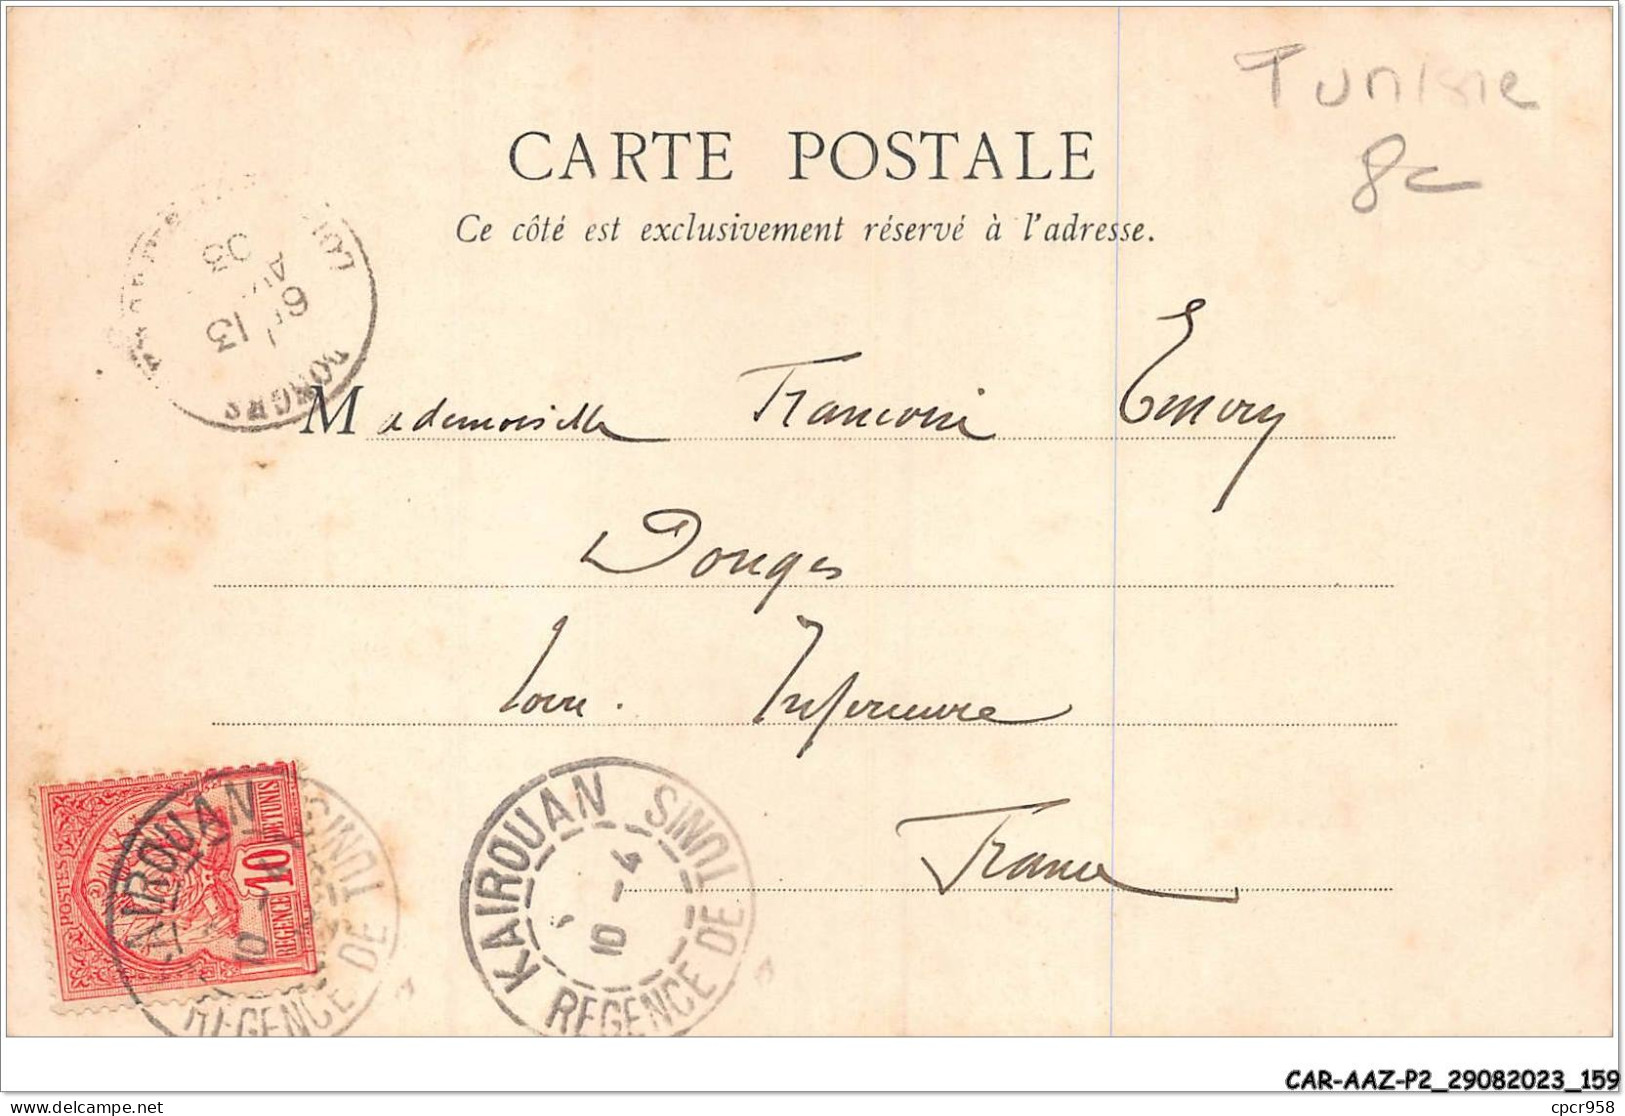 Tunisie
8c
CARTE POSTALE
Ce côté est exclusivement réservé à l'adresse.
LOIRE
DONGES
6E / 13
03
Mademoiselle Francoise Emery
Donges
Loire. Inferieure
France
POSTES
10
REGENCE DE TUNIS
KAIROUAN
REGENCE DE TUNIS
10
KAIROUAN
REGENCE DE TUNIS
10 - 4
CAR-AAZ-P2_29082023_159
delcampe.net
cpcr958